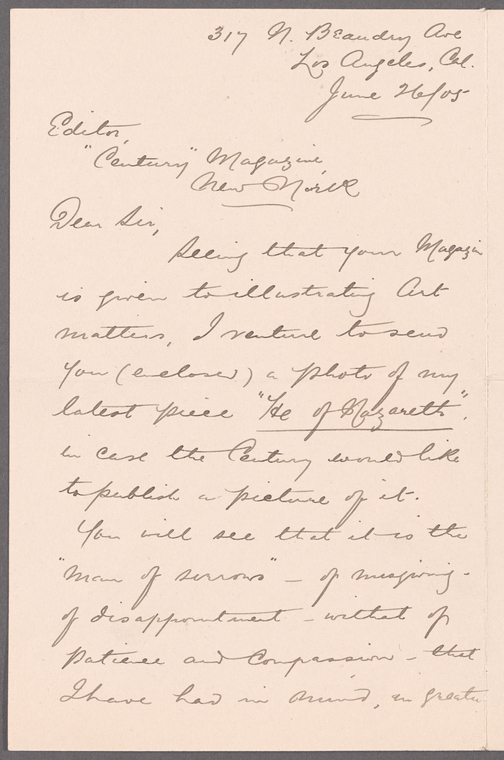 317 N. Beaudry Ave
Los Angeles, Cal.
June 26/05
Editor,
"Century" Magazine,
New York
Dear Sir,
Seeing that your Magazin
is given to illustrating Art
matters, I venture to send
you (enclosed) a photo of my
latest piece "He of Nazareth",
in case the Century would like
to publish a picture of it.
You will see that it is the
"man of sorrows" - of misgiving -
of disappointment - withal of
patience and compassion - that
I have had in mind, in greater